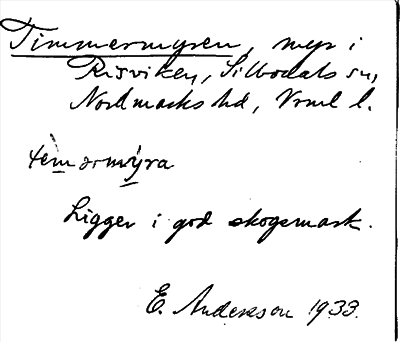 Timmermyren, myr i
Risviken, Silbodals sn,
Nordmarks hd, Vrml l.
temərmýra
Ligger i god skogsmark.
E. Anderson 1933.